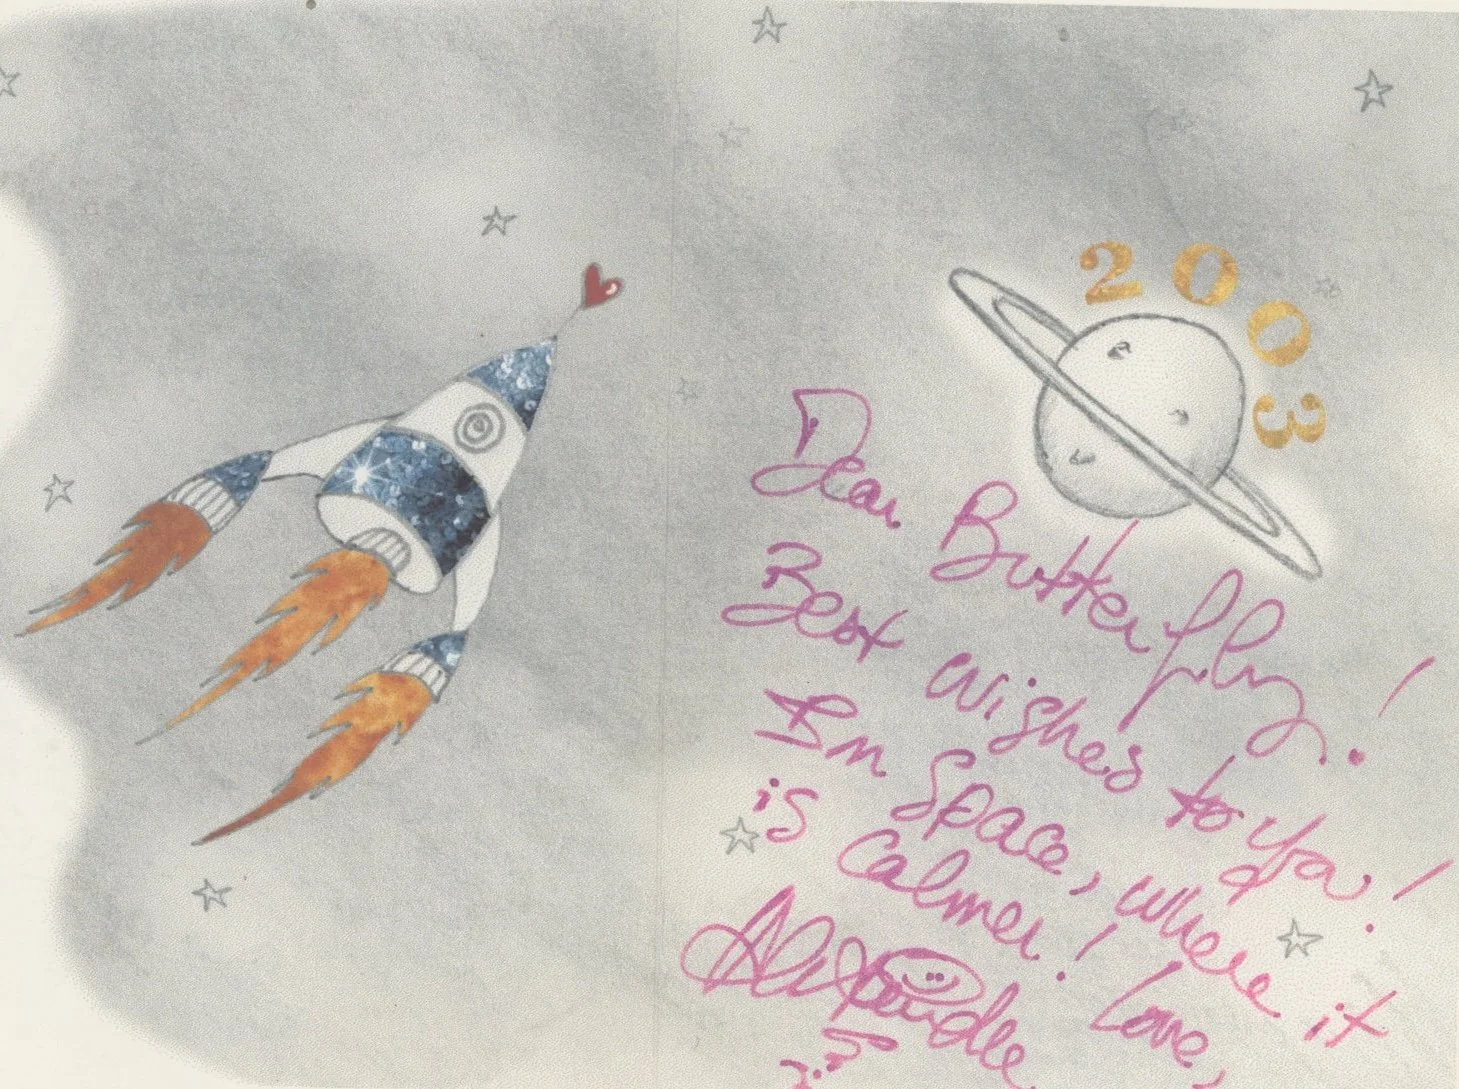 2003
Dear Butterfly!
Best wishes to ya!
In Space, where it
is calmer! Love,